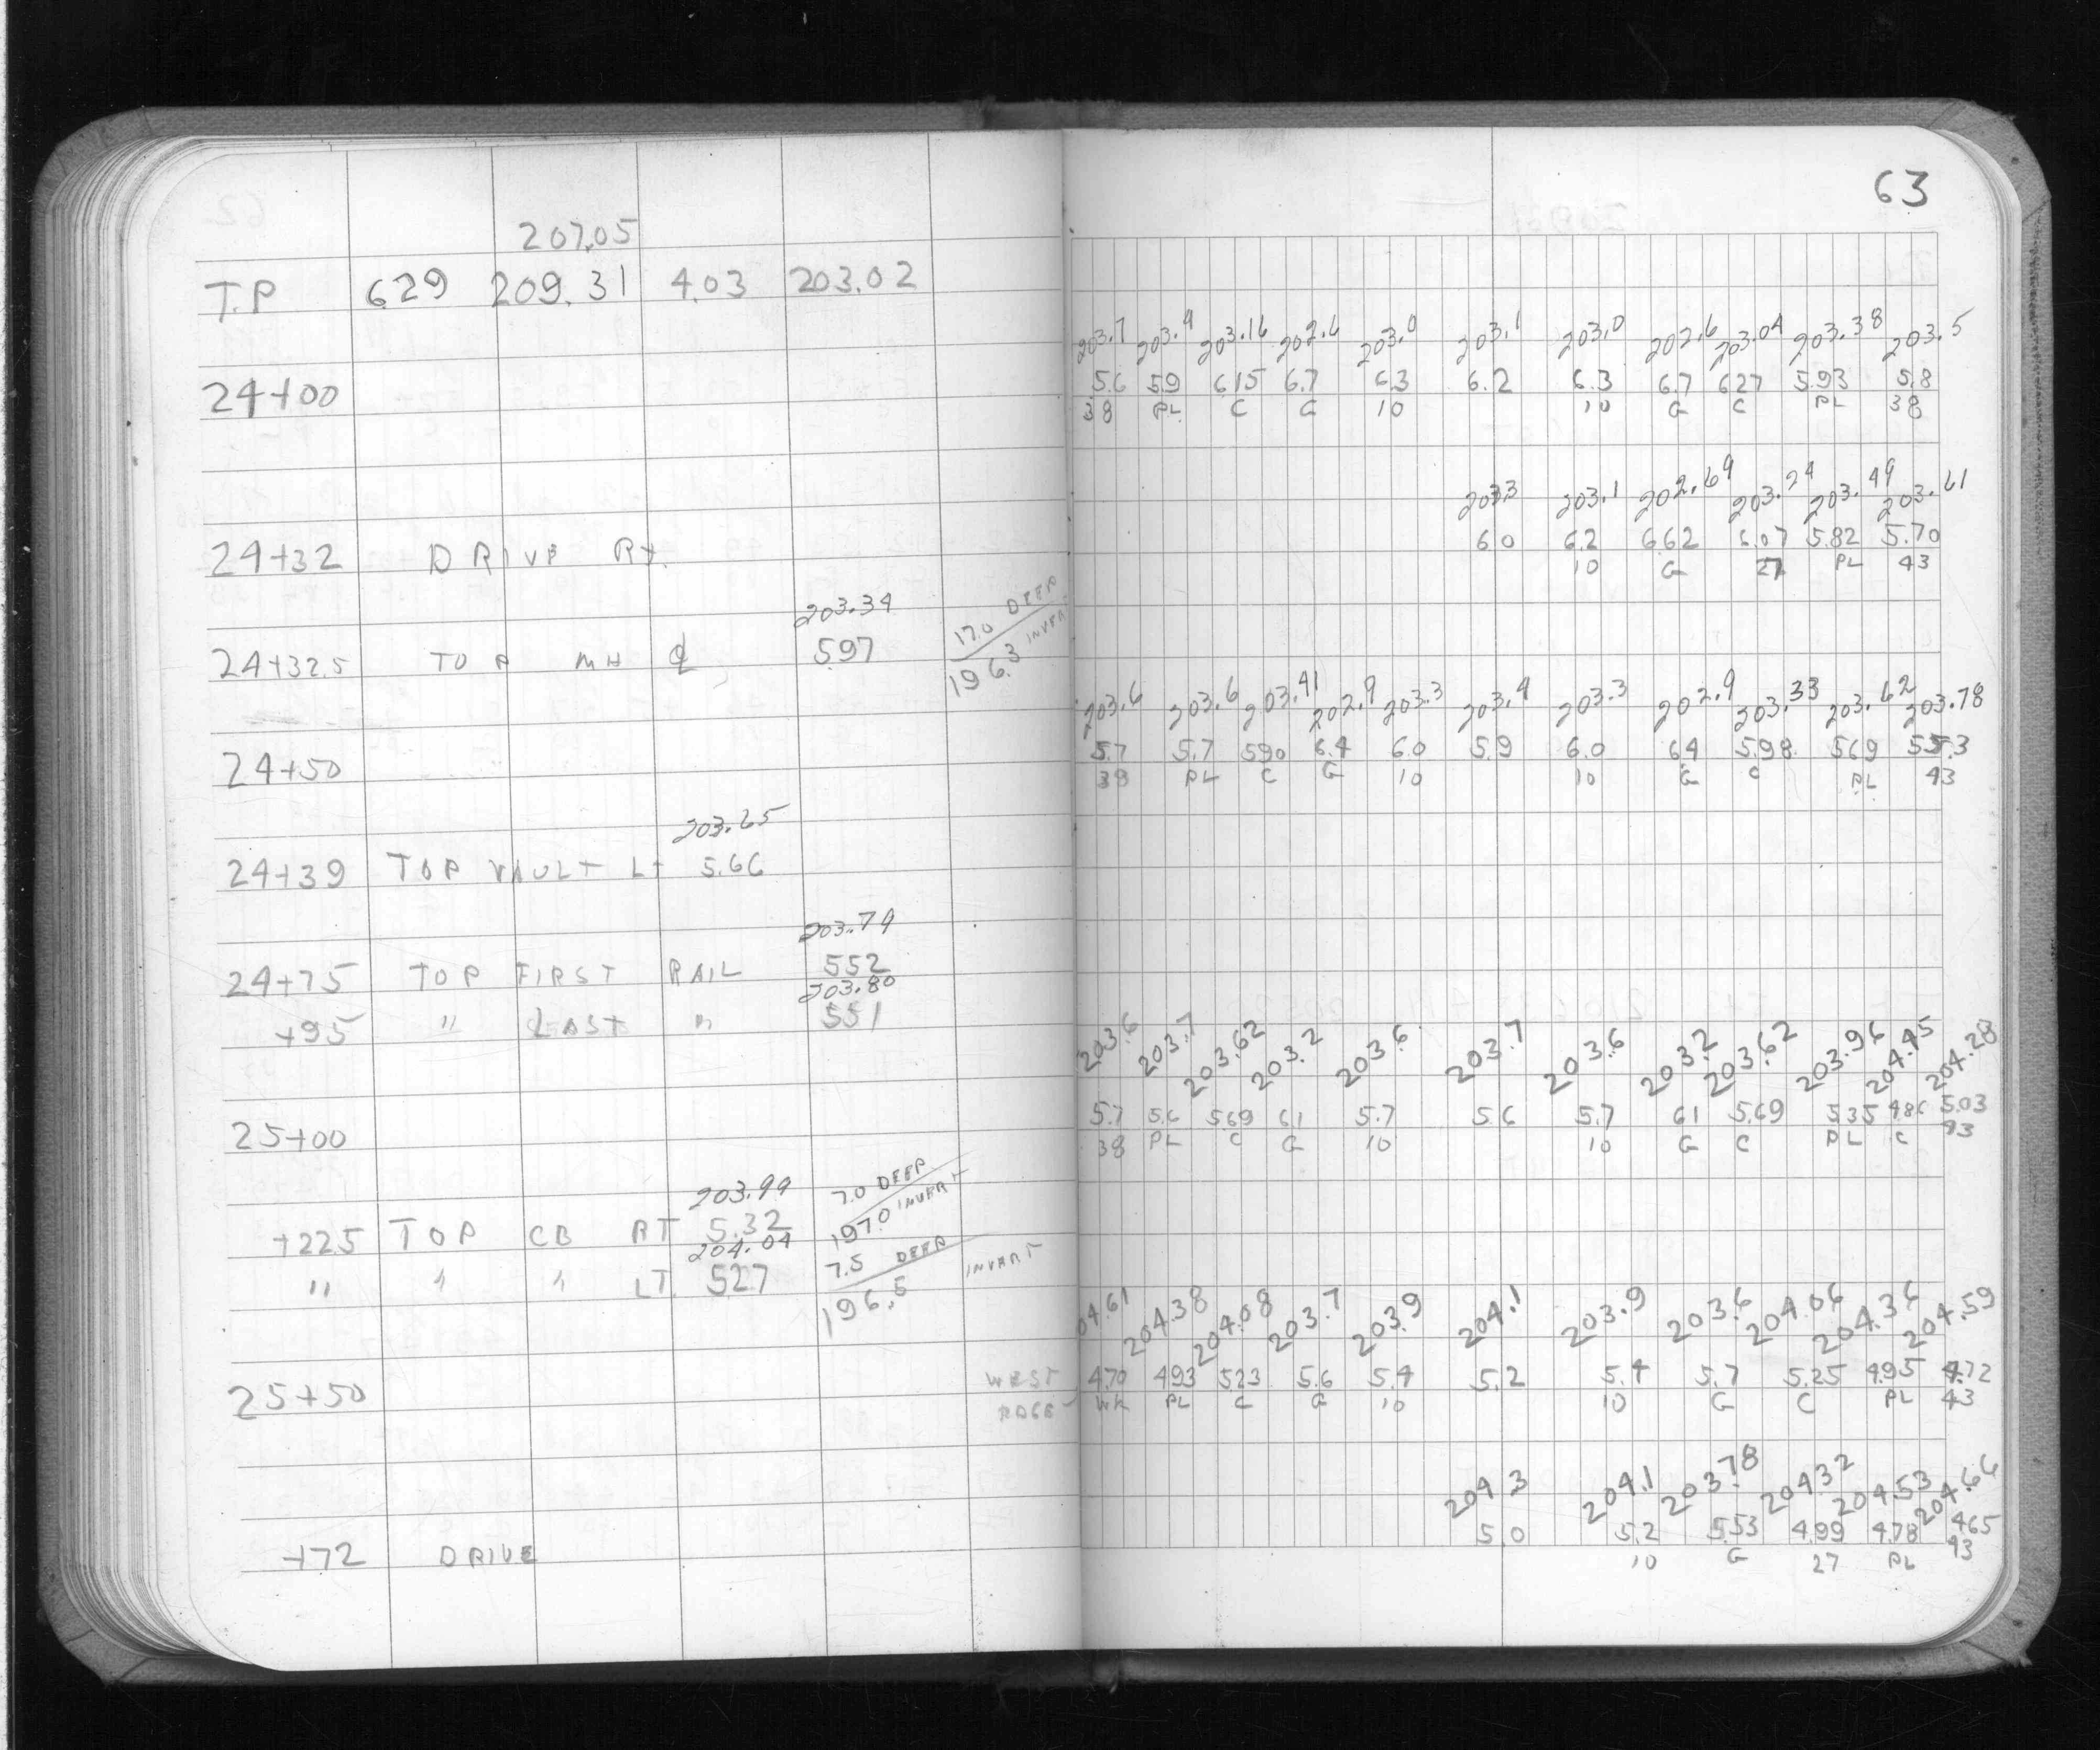 63
207.05
T.P 629 209.31 4.03 203.02
203.7 203.4 203.16 202.6 203.0 203.1 203.0 202.6 203.04 203.38 203.5
24+00 5.6 59 615 6.7 6.3 6.2 6.3 6.7 627 5.93 5.8
38 PL C G 10 10 G C PL 38
203.3 203.1 202.69 203.24 203.49 203.61
24+32 DRIVE RT. 60 62 662 6.07 5.82 5.70
10 G 27 PL 43
203.34 17.0 DEEP
24+32.5 TOP MH ℄ 597 196.3 INVERT
203.6 203.6 203.41 202.9 203.3 203.4 203.3 202.9 203.33 203.62 203.78
24+50 5.7 5.7 590 6.4 6.0 5.9 6.0 64 5.98 569 5.53
38 PL C G 10 10 G C PL 43
203.65
24+39 TOP VAULT LT 5.66
203.79
24+75 TOP FIRST RAIL 552
203.80
+95 " LAST " 551
203.6 203.7 203.62 203.2 203.6 203.7 203.6 203.2 203.62 203.96 204.45 204.28
25+00 5.7 5.6 569 61 5.7 56 5.7 61 5.69 535 486 5.03
38 PL C G 10 10 G C PL C 43
203.99 7.0 DEEP
+225 TOP CB RT 5.32 197.0 INVERT
204.04 7.5 DEEP
" " " LT 527 196.5 INVERT
204.61 204.38 204.08 203.7 203.9 204.1 203.9 203.6 204.06 204.36 204.59
25+50 WEST 470 493 523 5.6 5.4 5.2 5.4 5.7 5.25 495 4.72
EDGE WK PL C G 10 10 G C PL 43
204.3 204.1 203.78 204.32 204.53 204.66
+72 DRIVE 5.0 5.2 553 499 4.78 465
10 G 27 PL 43